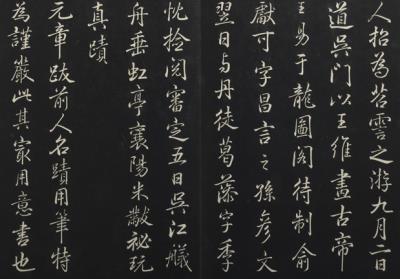 人招為苕霅之游九月二日
道吳門以王維畫古帝
王易于龍圖閣待制俞
獻可字昌言之孫彥文
翌日與丹徒葛藻字季
忱撿閱審定五日吳江艤
舟垂虹亭襄陽米黻祕玩
真蹟
元章跋前人名蹟用筆特
為謹嚴此其家用意書也